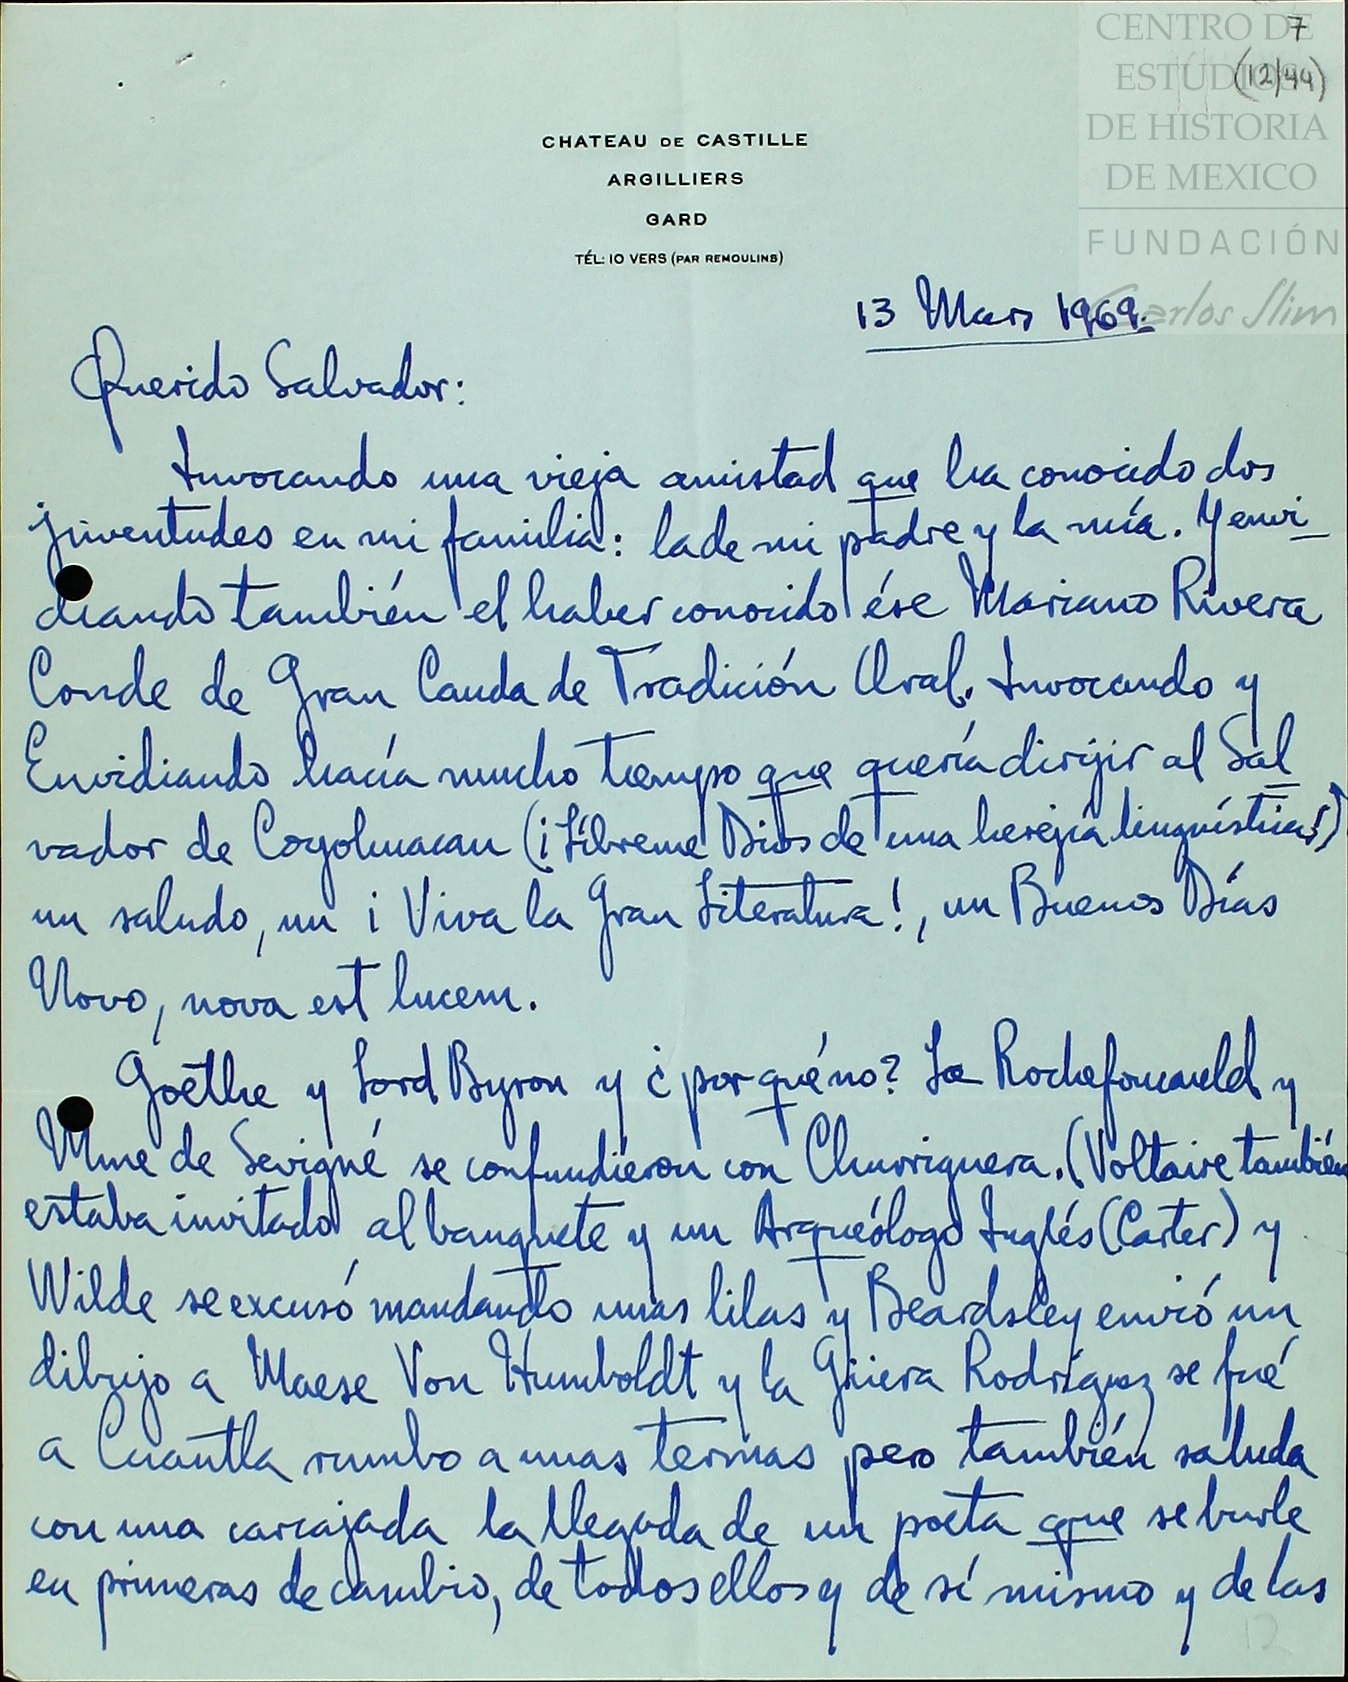 CENTRO DE
ESTUDIOS
DE HISTORIA
DE MEXICO
FUNDACIÓN
Carlos Slim
7
(12/44)
CHATEAU DE CASTILLE
ARGILLIERS
GARD
TÉL: 10 VERS (PAR REMOULINS)
13 Mars 1969.
Querido Salvador:
Invocando una vieja amistad que ha conocido dos
juventudes en mi familia: la de mi padre y la mía. Y envi-
diando también el haber conocido ése Mariano Rivera
Conde de Gran Cauda de Tradición Oral. Invocando y
Envidiando hacía mucho tiempo que quería dirijir al Sal
vador de Coyohuacan (¡Líbreme Dios de una herejía lingüística!)
un saludo, un ¡Viva la Gran Literatura!, un Buenos Días
Novo, nova est lucem.
Goethe y Lord Byron y ¿por qué no? La Rochefoucauld y
Mme de Sevigné se confundieron con Churriguera. (Voltaire también
estaba invitado al banquete y un Arqueólogo Inglés (Carter) y
Wilde se excusó mandando unas lilas y Beardsley envió un
dibujo a Maese Von Humboldt y la Güera Rodríguez se fué
a Cuautla rumbo a unas termas pero también saluda
con una carcajada la llegada de un poeta que se burle
en primeras de cambio, de todos ellos y de sí mismo y de las
12